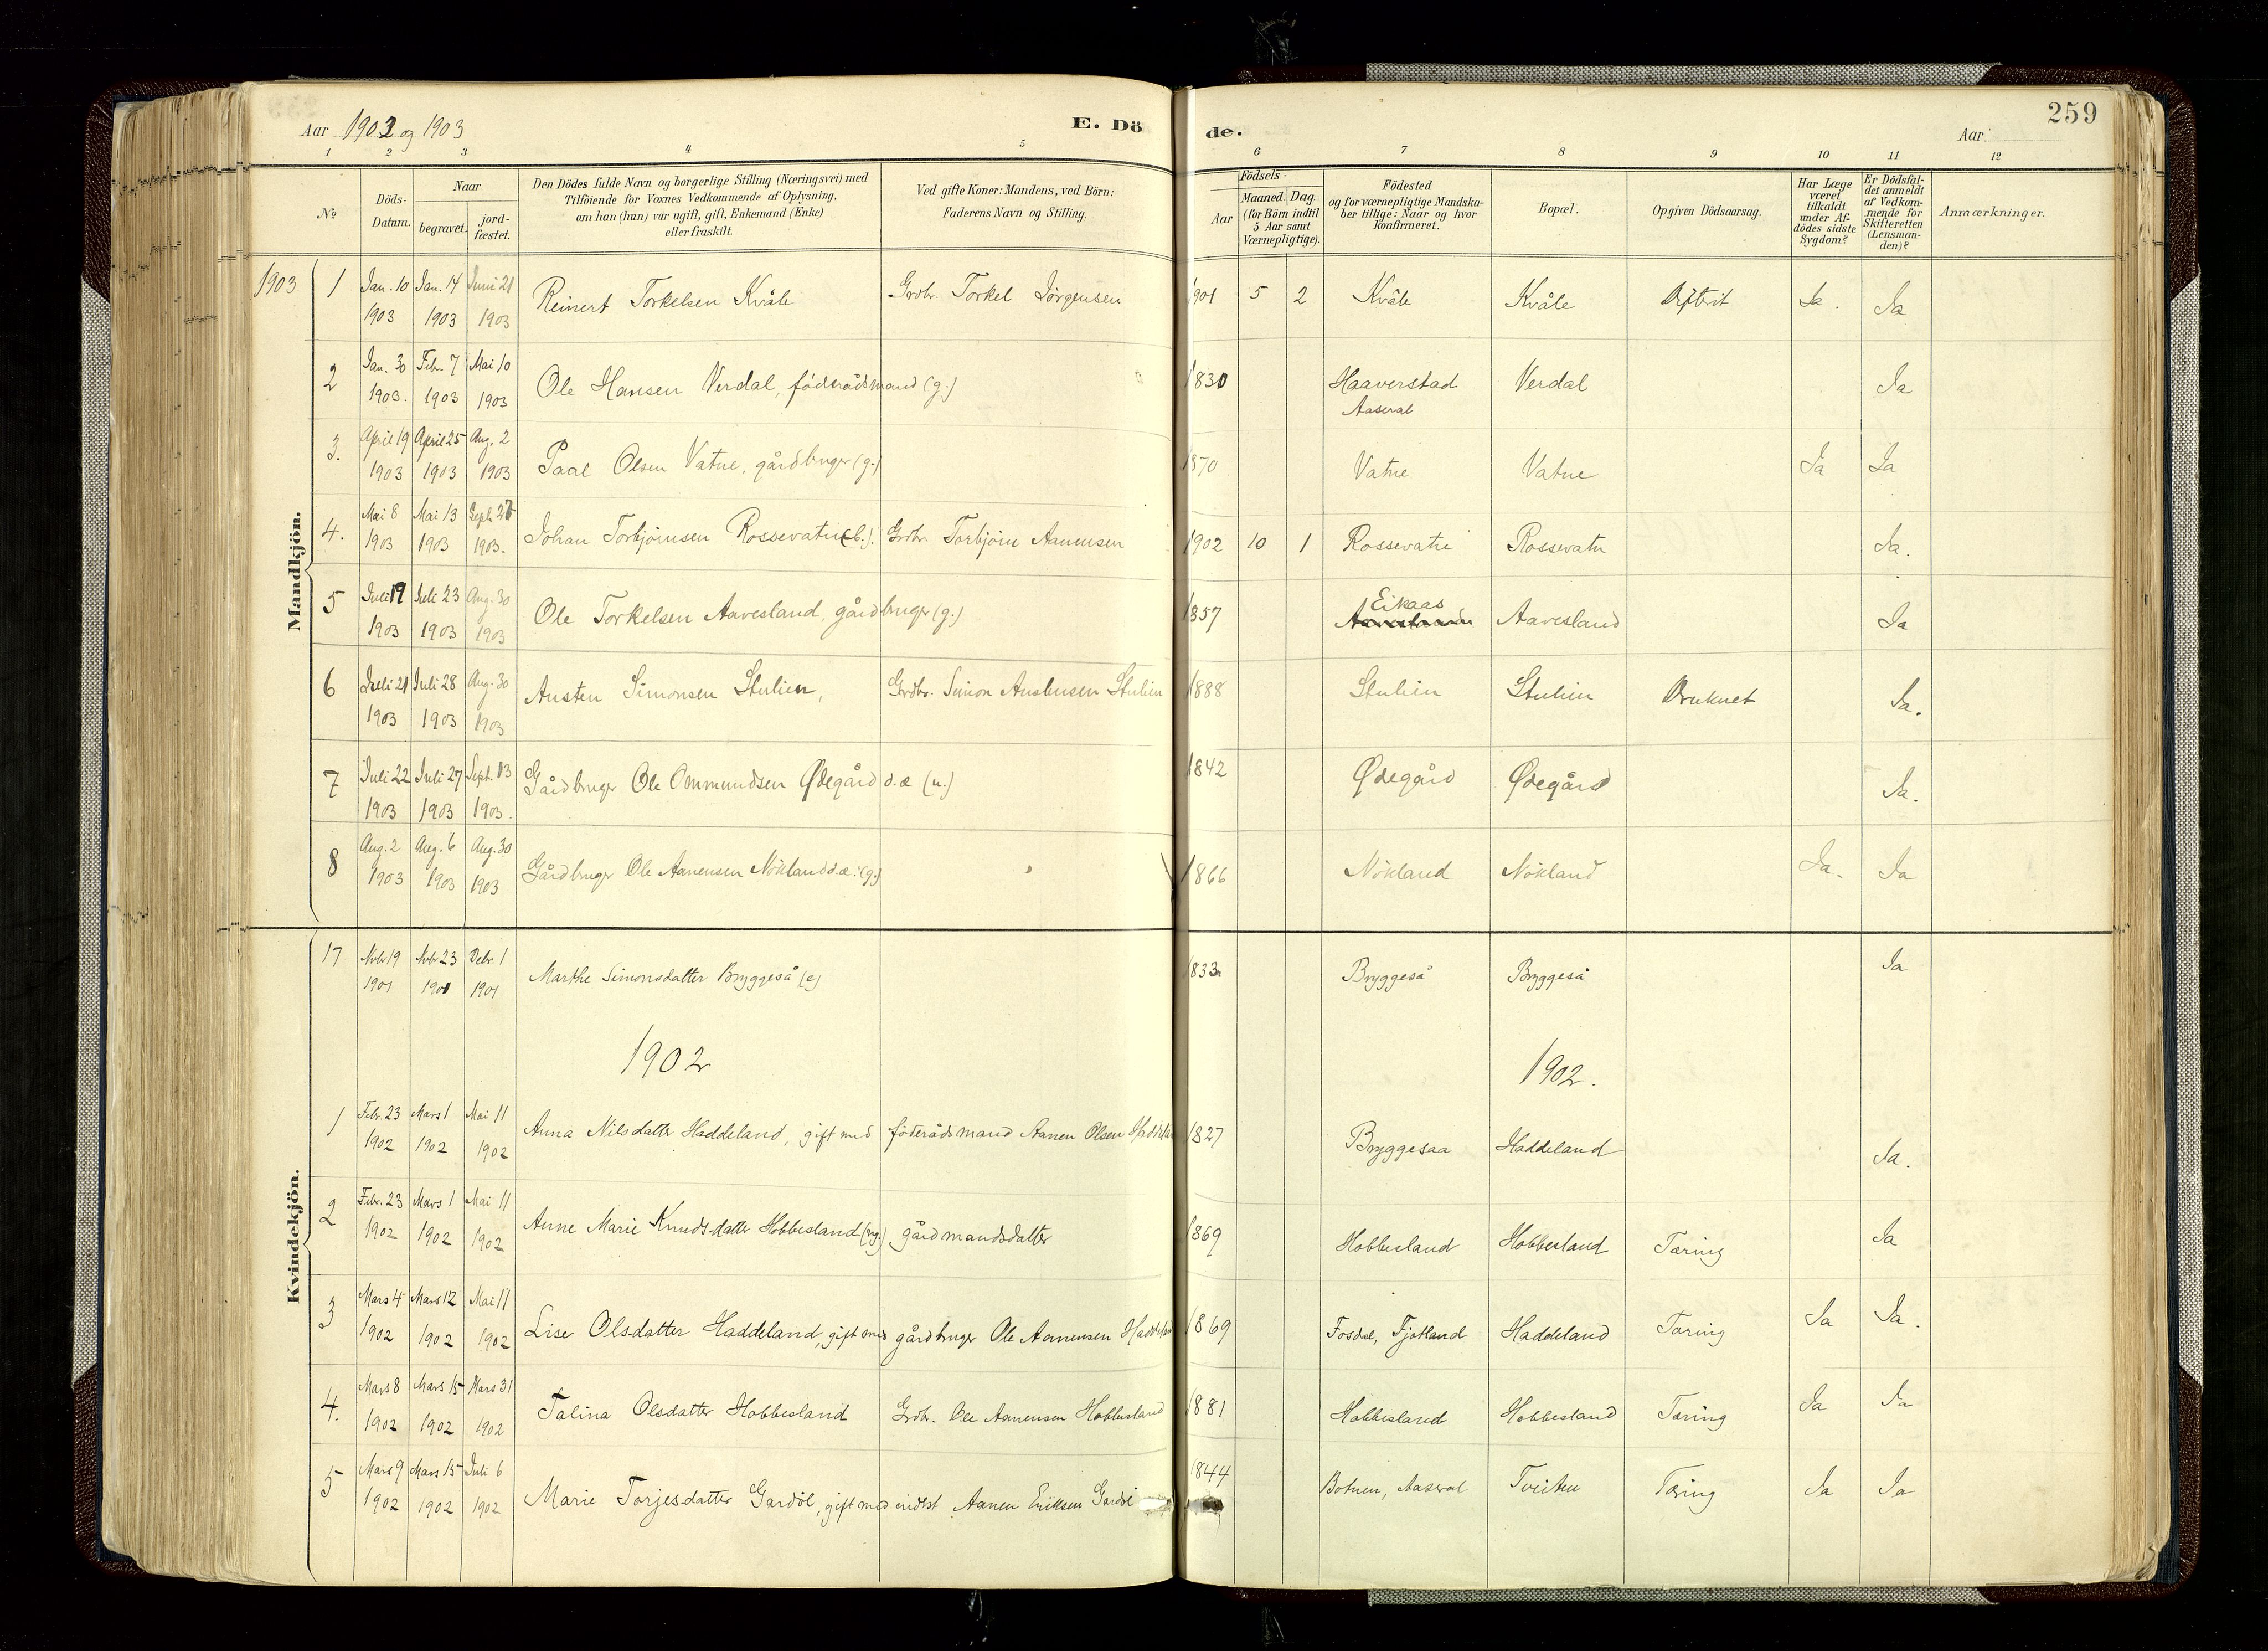 Aar 1902 og 1903 E. Döde. Aar 259
1 2 3 4 5 6 7 8 9 10 11 12
№ Döds-Datum. Naar begravet. jordfæstet. Den Dödes fulde Navn og borgerlige Stilling (Næringsvei) med Tilföiende for Voxnes Vedkommende af Oplysning, om han (hun) var ugift, gift, Enkemand (Enke) eller fraskilt. Ved gifte Koner: Mandens, ved Börn: Faderens Navn og Stilling. Födsels- Aar Maaned. Dag. (for Börn indtil 5 Aar samt Værnepligtige). Födested og for værnepligtige Mandskaber tillige: Naar og hvor konfirmeret. Bopæl. Opgiven Dödsaarsag. Har Læge været tilkaldt under Afdödes sidste Sygdom? Er Dödsfaldet anmeldt af Vedkommende for Skifteretten (Lensmanden)? Anmærkninger.
Mandkjön.
1903 1 Jan. 10 1903 Jan. 14 1903 Juni 21 1903 Reinert Torkelsen Kvåle Grdbr. Torkel Jörgensen 1901 5 2 Kvåle Kvåle Difterit Ja. Ja
2 Jan. 30 1903. Febr. 7 1903 Mai 10 1903 Ole Hansen Verdal, föderådsmand (g.) 1830 Haaverstad Aaseral Verdal Ja
3. April 19 1903 April 25 1903 Aug. 2 1903 Paal Olsen Vatne, gårdbruger (g.) 1870 Vatne Vatne Ja Ja
4. Mai 8 1903 Mai 13 1903 Sept. 27 1903. Johan Torbjörnsen Rossevatn (b.). Grdbr. Torbjörn Aanensen 1902 10 1 Rossevatn Rossevatn Ja.
5 Juli 19 1903 Juli 23 1903 Aug. 30 1903 Ole Torkelsen Aavesland, gårdbruger (g.) 1857 Eikaas Aavesland Aavesland Ja
6 Juli 21 1903 Juli 28 1903 Aug. 30 1903 Austen Simonsen Stulien, Grdbr. Simon Austensen Stulien 1888 Stulien Stulien Druknet Ja.
7 Juli 22 1903 Juli 27 1903 Sept. 13 1903. Gårdbruger Ole Ommundsen Ødegård d.æ (u.) 1842 Ødegård Ødegård Ja.
8 Aug. 2 1903 Aug. 6 1903 Aug. 30 1903 Gårdbruger Ole Aanensen Nökland d.æ. (g.) 1866 Nökland Nökland Ja. Ja
Kvindekjön.
17 Nvbr 19 1901 Nvbr 23 1901 Debr. 1 1901 Marthe Simonsdatter Bryggeså (e) 1833 Bryggeså Bryggeså Ja
1902 1902.
1 Febr. 23 1902 Mars 1 1902 Mai 11 1902 Anna Nilsdatter Haddeland, gift med föderådsmand Aanen Olsen Haddeland 1827 Bryggesaa Haddeland Ja.
2 Febr. 23 1902 Mars 1 1902 Mai 11 1902 Anne Marie Knudsdatter Hobbesland (ug.) gårdmandsdatter 1869 Hobbesland Hobbesland Tæring Ja
3 Mars 4 1902 Mars 12 1902 Mai 11 1902 Lise Olsdatter Haddeland, gift med gårdbruger Ole Aanensen Haddeland 1869 Fosdal, Fjotland Haddeland Tæring Ja Ja.
4. Mars 8 1902 Mars 15 1902 Mars 31 1902 Talina Olsdatter Hobbesland Grdbr. Ole Aanensen Hobbesland 1881 Hobbesland Hobbesland Tæring Ja Ja
5 Mars 9 1902 Mars 15 1902 Juli 6 1902 Marie Torjesdatter Gardöl, gift med indst Aanen Eriksen Gardöl 1844 Botnen, Aaseral Tveiten Tæring Ja Ja